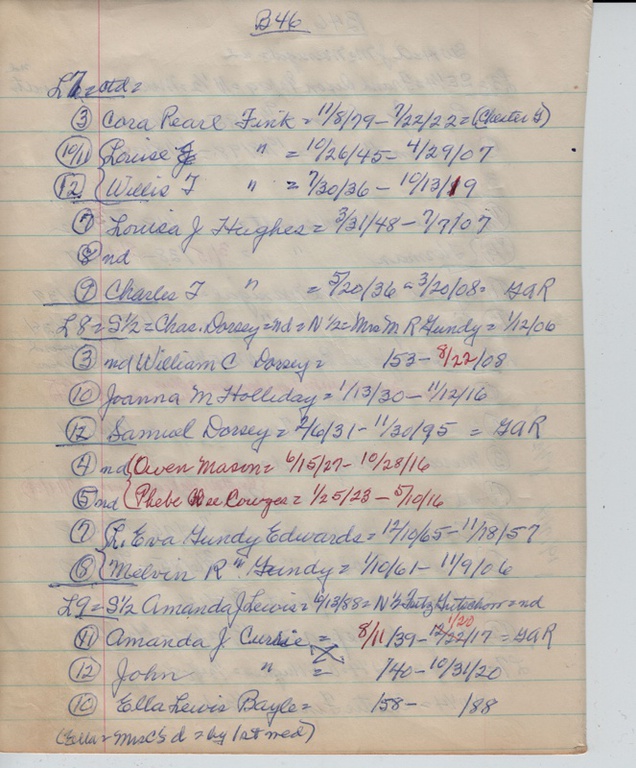 B46
L7= otd=
③ Cora Pearl Fink = 11/8/79 – 7/22/22 = (Chester F)
⑩/11 Louise " = 10/26/45 – 4/29/07
⑫ Willis F " = 7/30/36 – 10/13/19
⑦ Louisa J Hughes = 3/31/48 – 7/7/07
⑧ nd
⑨ Charles F " = 5/20/36 – 3/20/08 = GAR
L8 = S½ = Chas. Dorsey = nd = N½ = Mrs M R Gundy = 1/12/06
③ nd William C Dorsey = /53 – 8/22/08
⑩ Joanna M Holliday = 1/13/30 – 11/12/16
⑫ Samuel Dorsey = 2/6/31 – 11/30/95 = GAR
④ nd Owen Mason = 6/15/27 – 10/28/16
⑤ nd Phebe Cowger = 1/25/23 – 5/10/16
⑦ L. Eva Gundy Edwards = 12/10/65 – 11/18/57
⑧ Melvin R " Gundy = 1/10/61 – 11/9/06
L9 = S½ Amanda J Lewis = 6/13/88 = N½ Fritz Gutschow = nd
1/20
⑪ Amanda J Currie = 8/11/39 – 12/22/17 = GAR
⑫ John " = /40 – 10/31/20
⑩ Ella Lewis Bayle = /58 – /88
(Ella = Mrs C's d = by 1st wed)